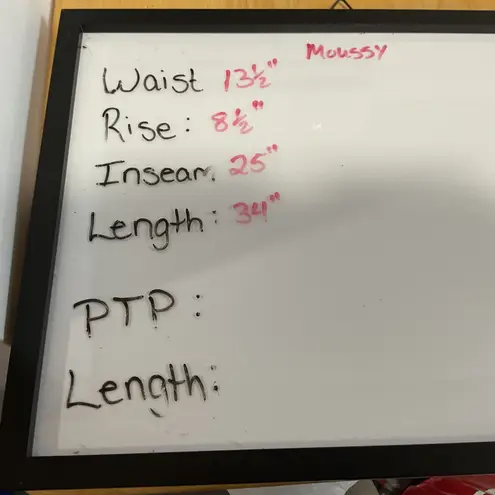 Moussy
Waist 13½"
Rise: 8½"
Inseam. 25"
Length: 34"
PTP:
Length: